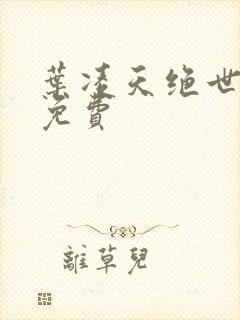 葉凌天绝世
免費
離草兒